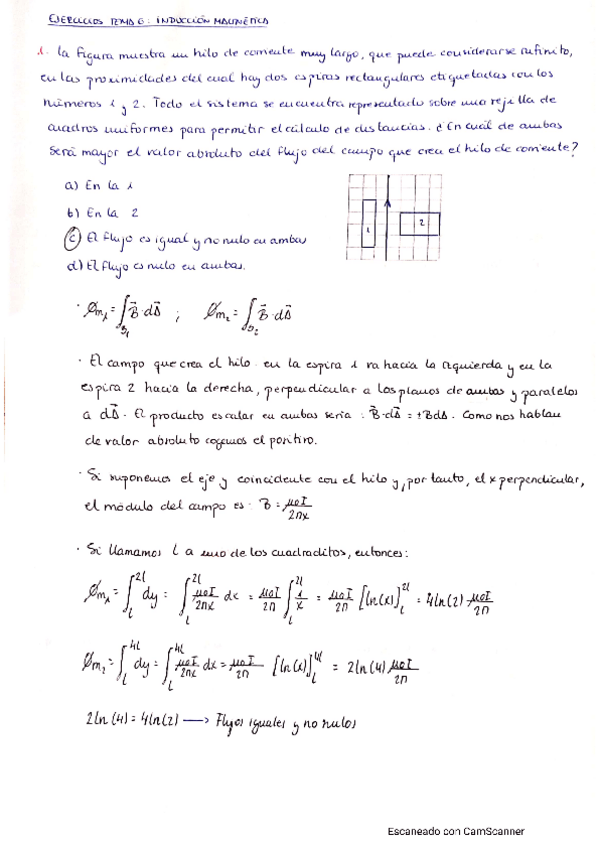 EJERCICIOS TEMA 6: INDUCCIÓN MAGNÉTICA
1. La figura muestra un hilo de corriente muy largo, que puede considerarse infinito,
en las proximidades del cual hay dos espiras rectangulares etiquetadas con los
números 1 y 2. Todo el sistema se encuentra representado sobre una rejilla de
cuadros uniformes para permitir el cálculo de distancias. ¿En cuál de ambas
será mayor el valor absoluto del flujo del campo que crea el hilo de corriente?
a) En la 1
b) En la 2
c) El flujo es igual y no nulo en ambas
d) El flujo es nulo en ambas.
1
2
· Øm₁ = ∫s₁ B⃗·dS⃗ ; Øm₂ = ∫s₂ B⃗·dS⃗
· El campo que crea el hilo en la espira 1 va hacia la izquierda y en la
espira 2 hacia la derecha, perpendicular a los planos de ambas y paralelos
a dS⃗. El producto escalar en ambas sería: B⃗·dS⃗ = ±BdS. Como nos hablan
de valor absoluto cogemos el positivo.
· Si suponemos el eje y coincidente con el hilo y, por tanto, el x perpendicular,
el módulo del campo es: B = μ₀I/2πx
· Si llamamos L a uno de los cuadraditos, entonces:
Øm₁ = ∫L^2L dy = ∫L^2L μ₀I/2πx dx = μ₀I/2π ∫L^2L 1/x = μ₀I/2π [ln(x)]L^2L = 4ln(2) μ₀I/2π
Øm₂ = ∫L^4L dy = ∫L^4L μ₀I/2πx dx = μ₀I/2π [ln(x)]L^4L = 2ln(4) μ₀I/2π
2ln(4) = 4ln(2) → Flujos iguales y no nulos
Escaneado con CamScanner